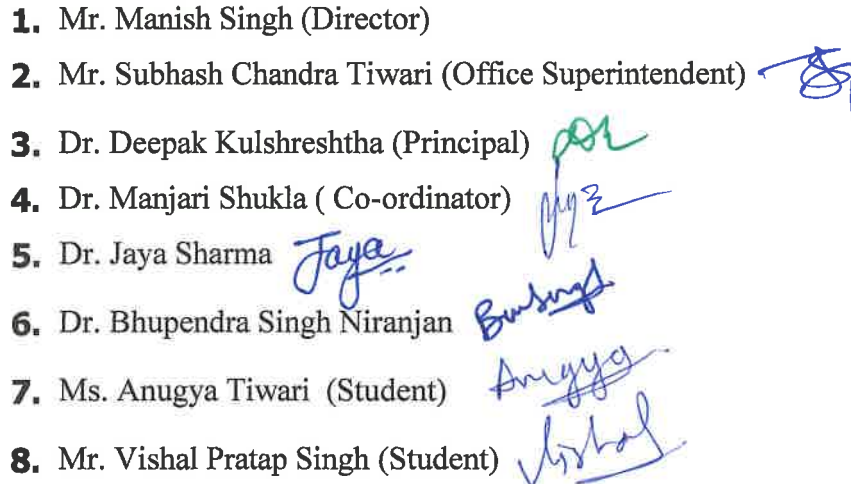 1. Mr. Manish Singh (Director)
2. Mr. Subhash Chandra Tiwari (Office Superintendent)
3. Dr. Deepak Kulshreshtha (Principal)
4. Dr. Manjari Shukla ( Co-ordinator)
5. Dr. Jaya Sharma Jaya
6. Dr. Bhupendra Singh Niranjan
7. Ms. Anugya Tiwari (Student) Anugya
8. Mr. Vishal Pratap Singh (Student) Vishal